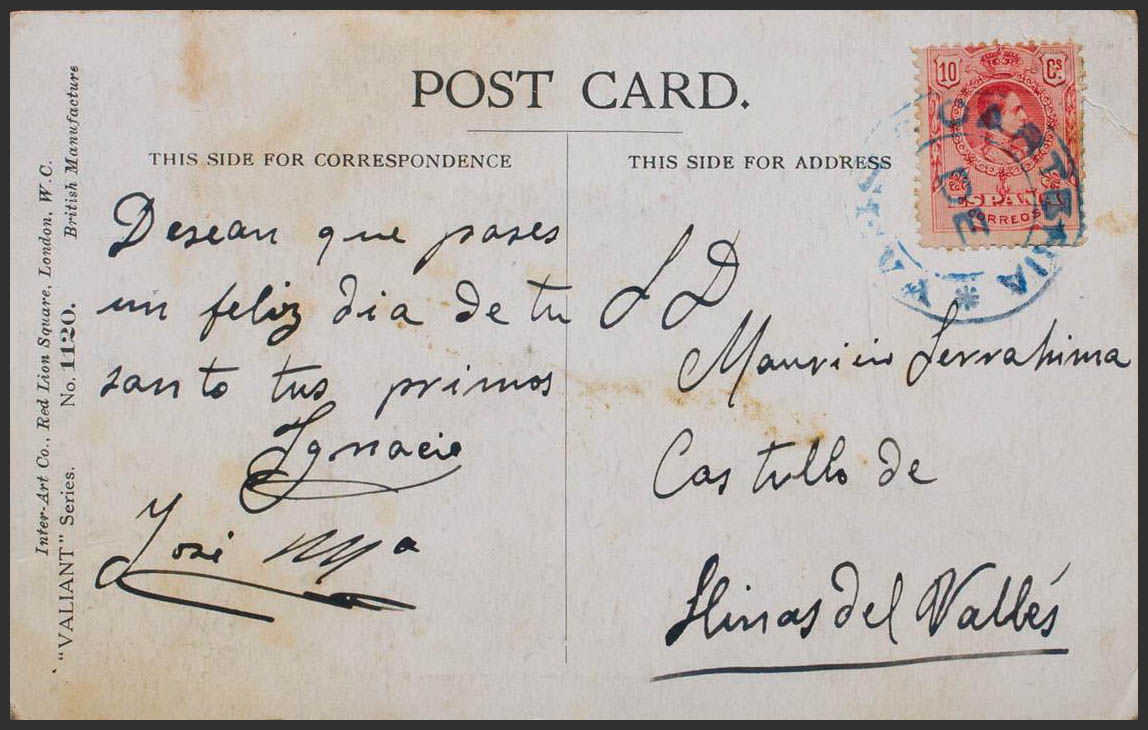 POST CARD.
THIS SIDE FOR CORRESPONDENCE
THIS SIDE FOR ADDRESS
Inter-Art Co., Red Lion Square, London, W.C.
British Manufacture
"VALIANT" Series. No. 1120.
Desean que pases
un feliz dia de tu
santo tus primos
Ignacio
José Mª
S D
Mauricio Serrahima
Castillo de
Llinas del Vallés
10 Cs.
ESPAÑA
CORREOS
CARTERIA
DE